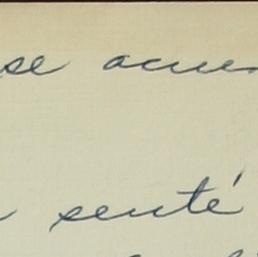 se acue
senté